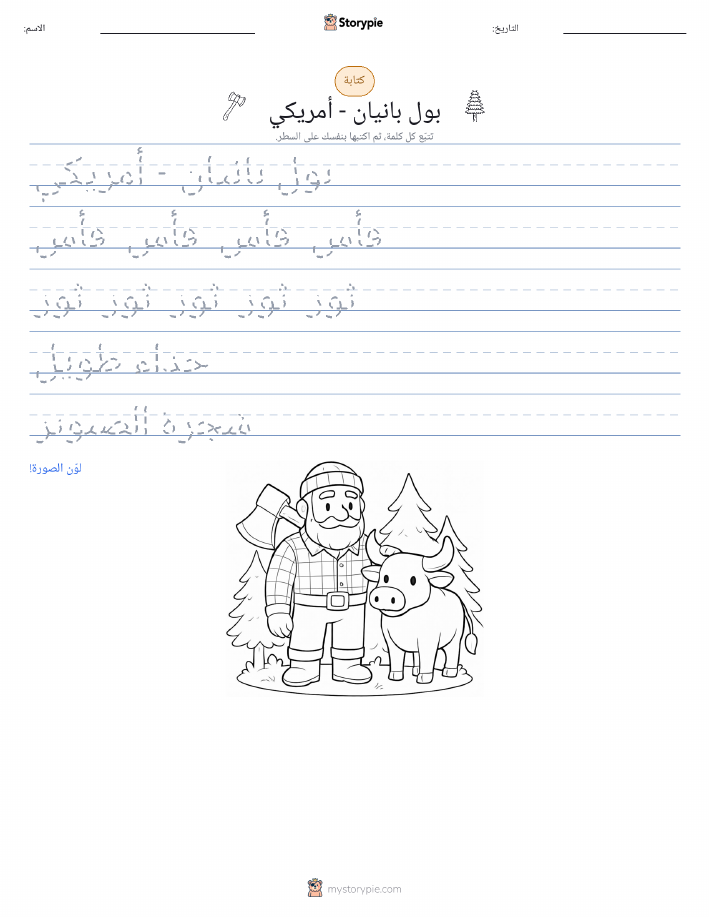 الاسم:
Storypie
التاريخ:
كتابة
بول بانيان - أمريكي
تتبّع كل كلمة، ثم اكتبها بنفسك على السطر.
بول بانيان - أمريكي
فأس فأس فأس فأس
ثور ثور ثور ثور ثور
حذاء طويل
شجرة الصنوبر
لوّن الصورة!
mystorypie.com